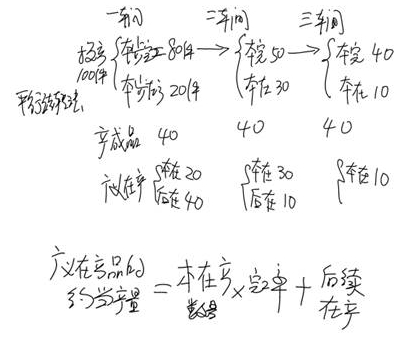 一车间 二车间 三车间
投产 本步完工 80件 → 本完 50 → 本完 40
100件 本步在产 20件 本在 30 本在 10
平行结转法
产成品 40 40 40
广义在产 本在 20 本在 30 本在 10
后在 40 后在 10
广义在产品的 = 本在产 × 完工率 + 后续
约当产量 数量 在产